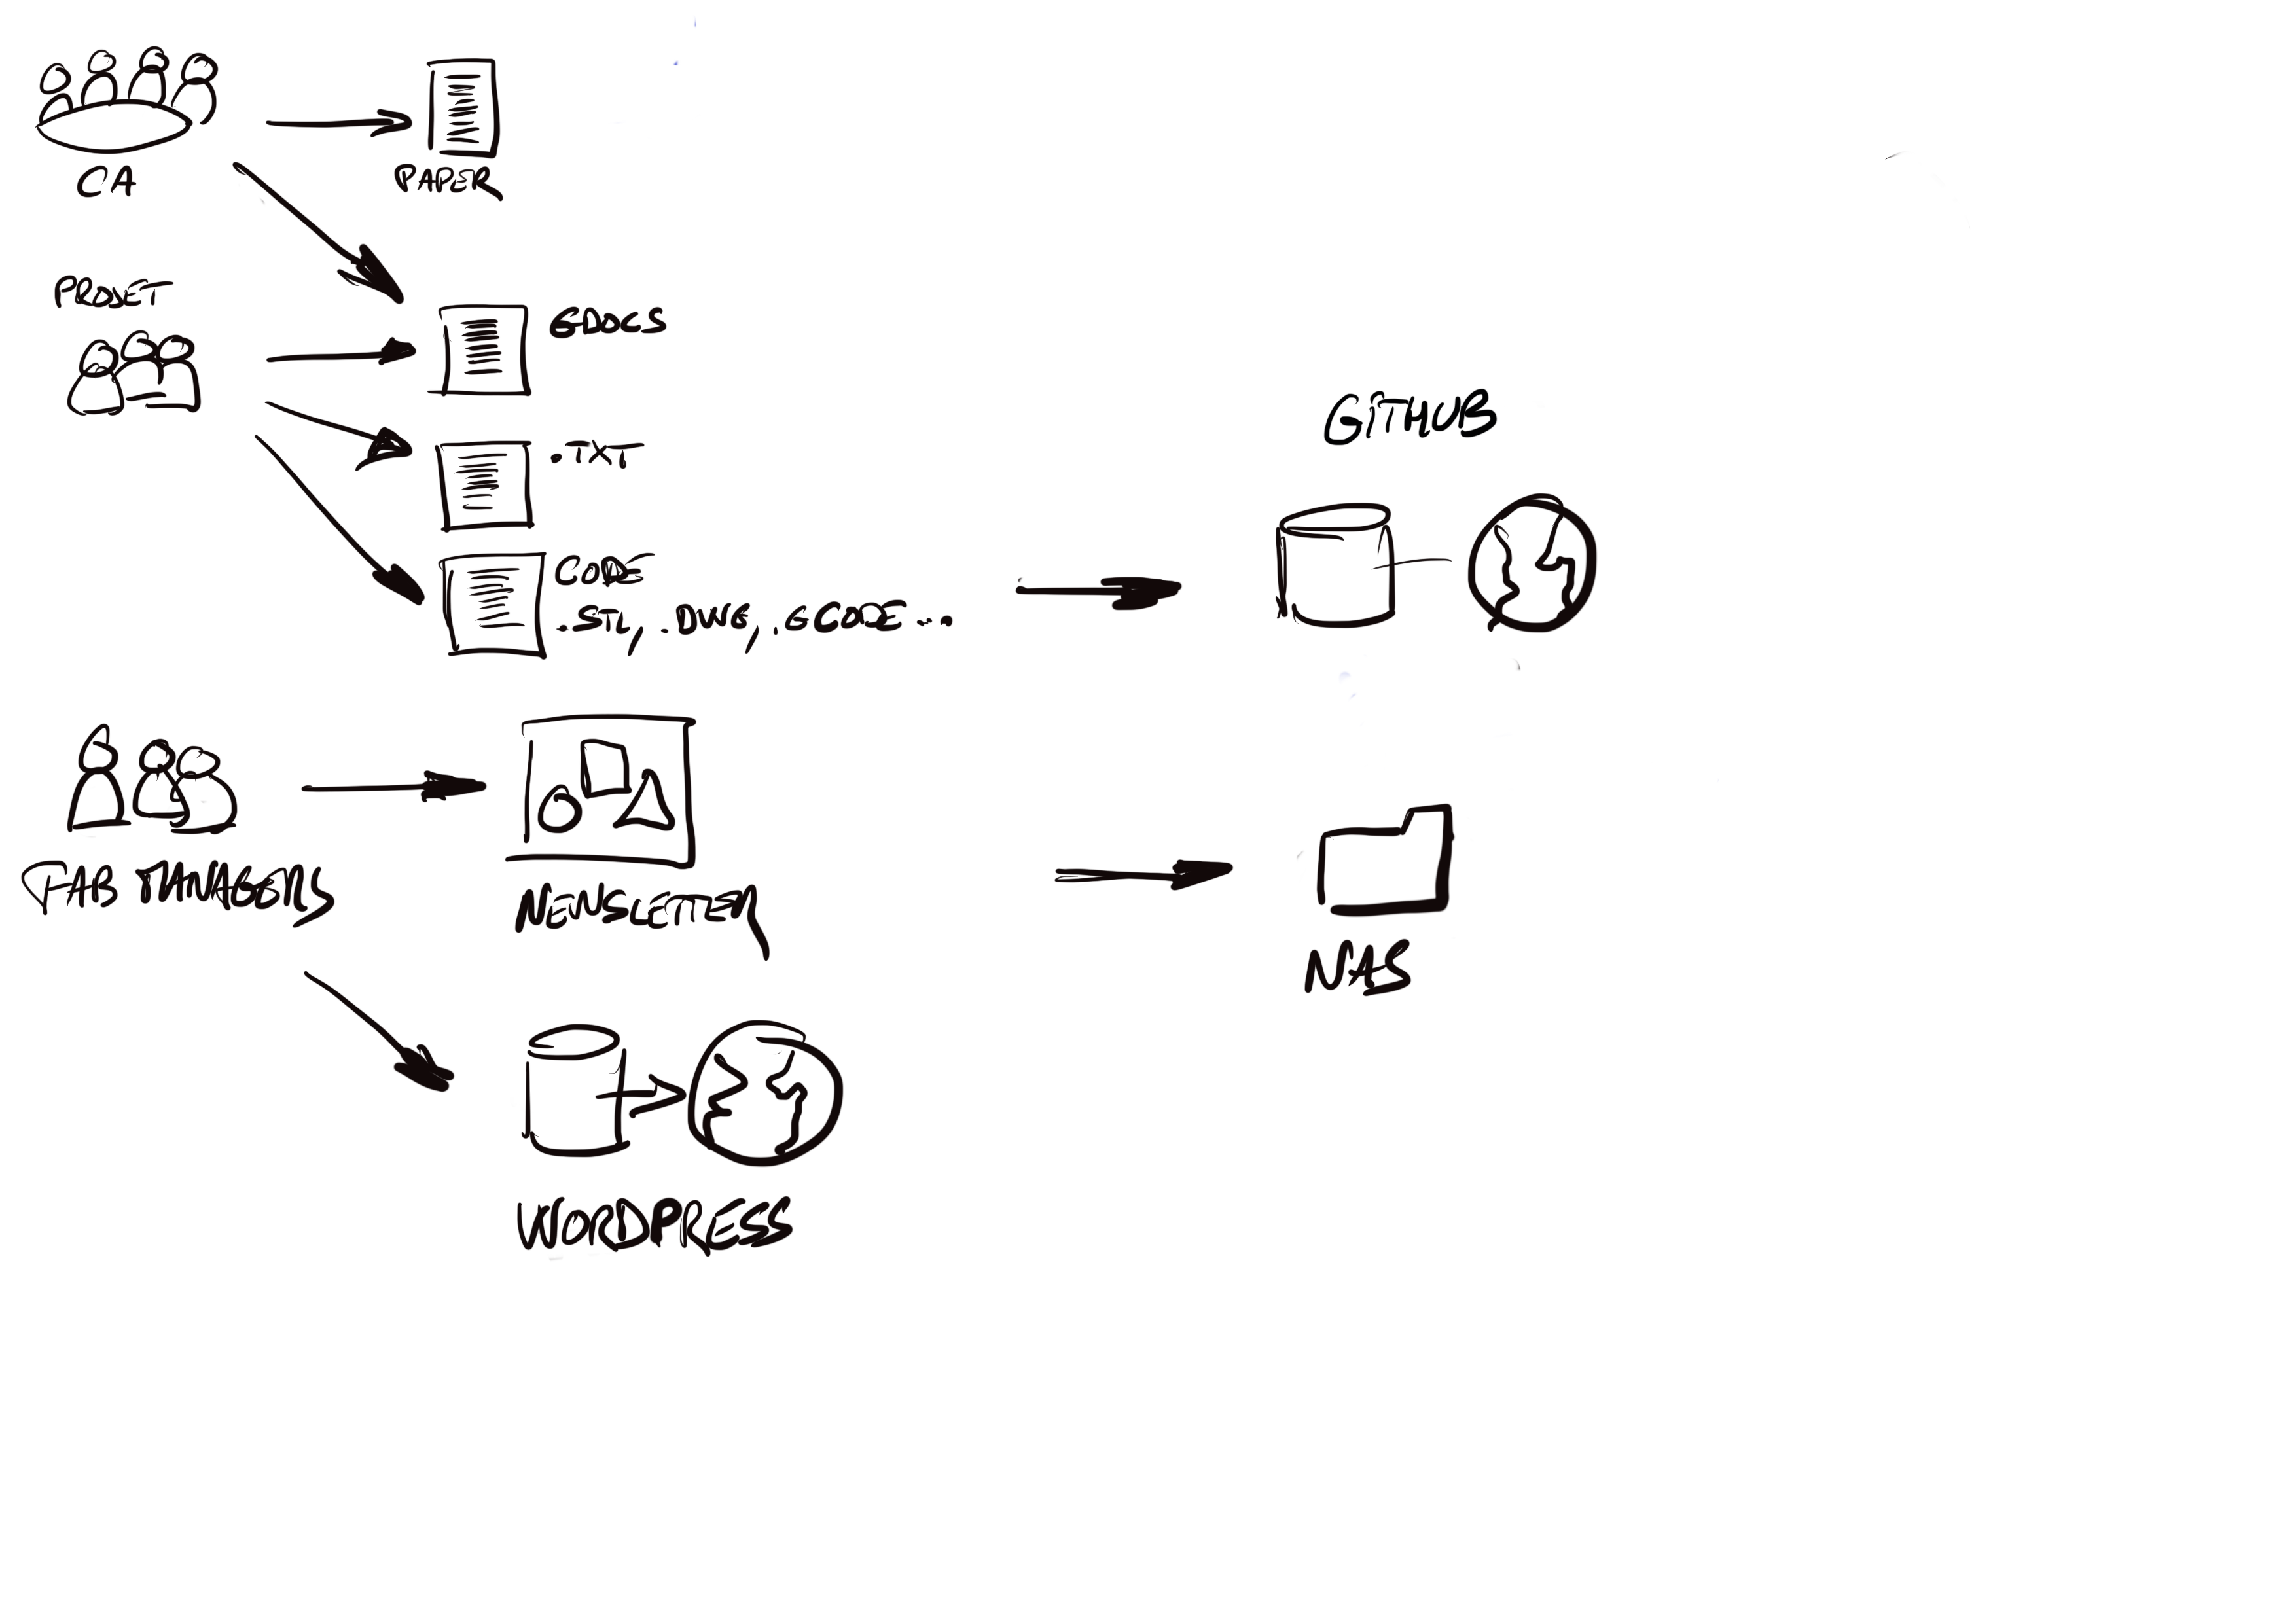 CA
PAPER
PROJET
GDOCS
.TXT
GITHUB
CODE
.STL, .DWG, .GCODE...
FAB MANAGERS
NEWSLETTER
NAS
WORDPRESS